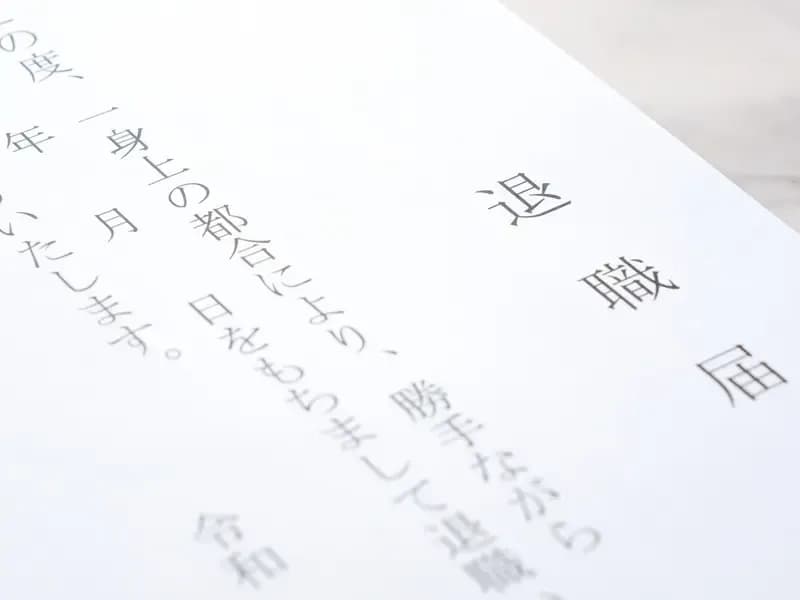 退職届
の度、一身上の都合により、勝手ながら
年 月 日をもちまして退職
いたします。
令和